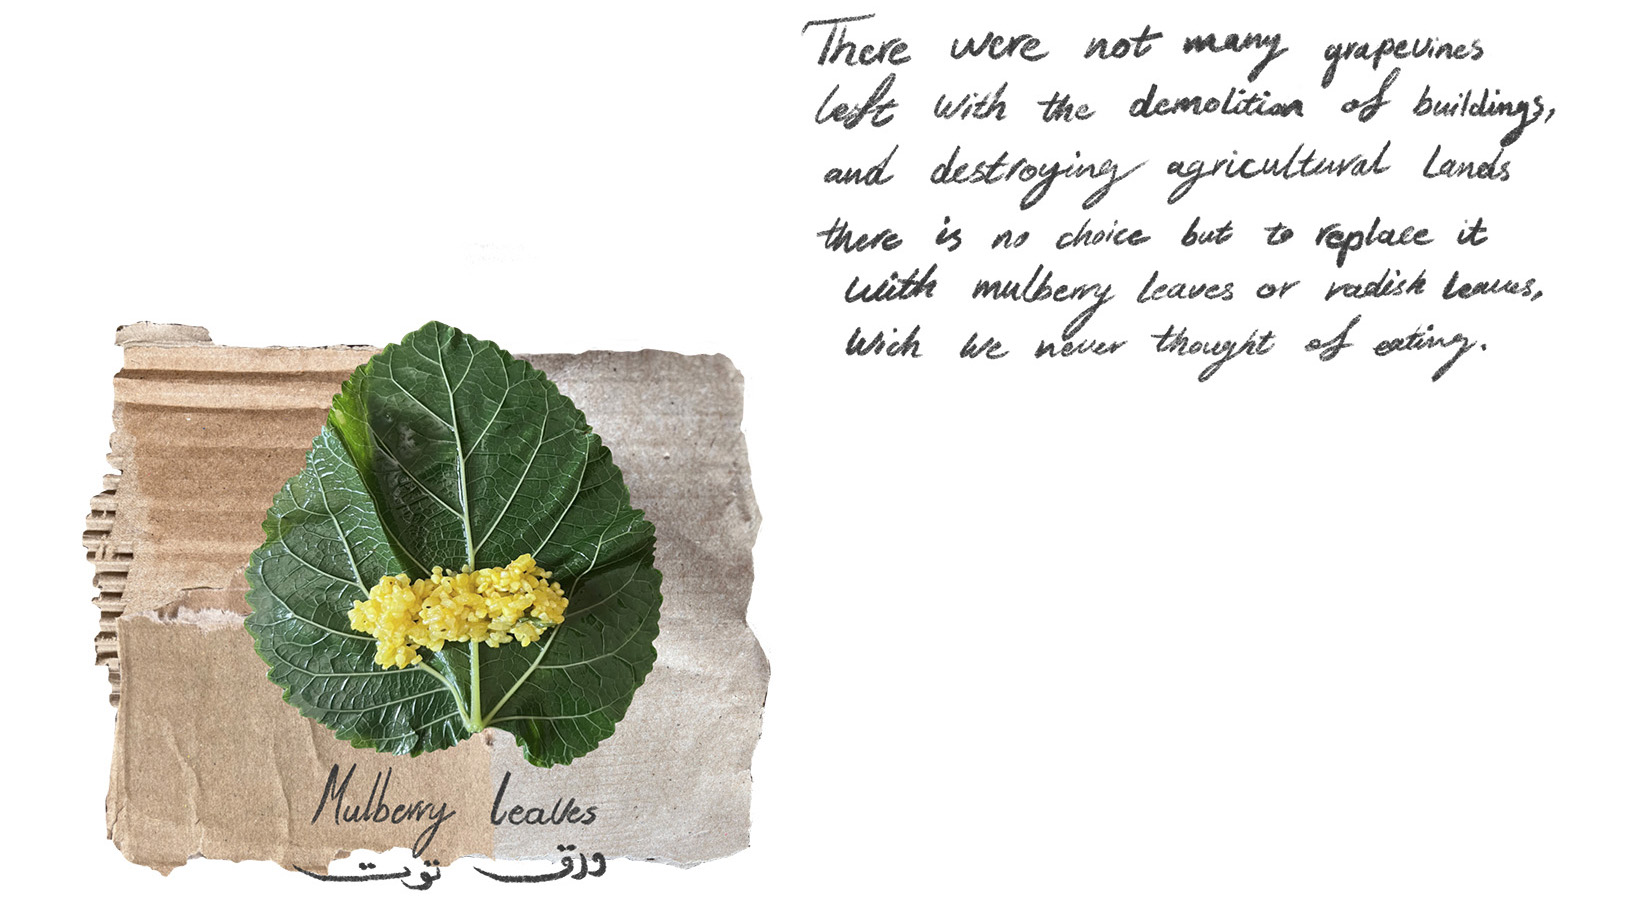 There were not many grapevines
left with the demolition of buildings,
and destroying agricultural Lands
there is no choice but to replace it
with mulberry leaves or radish leaves,
Wich we never thought of eating.
Mulberry Leaves
ورق توت